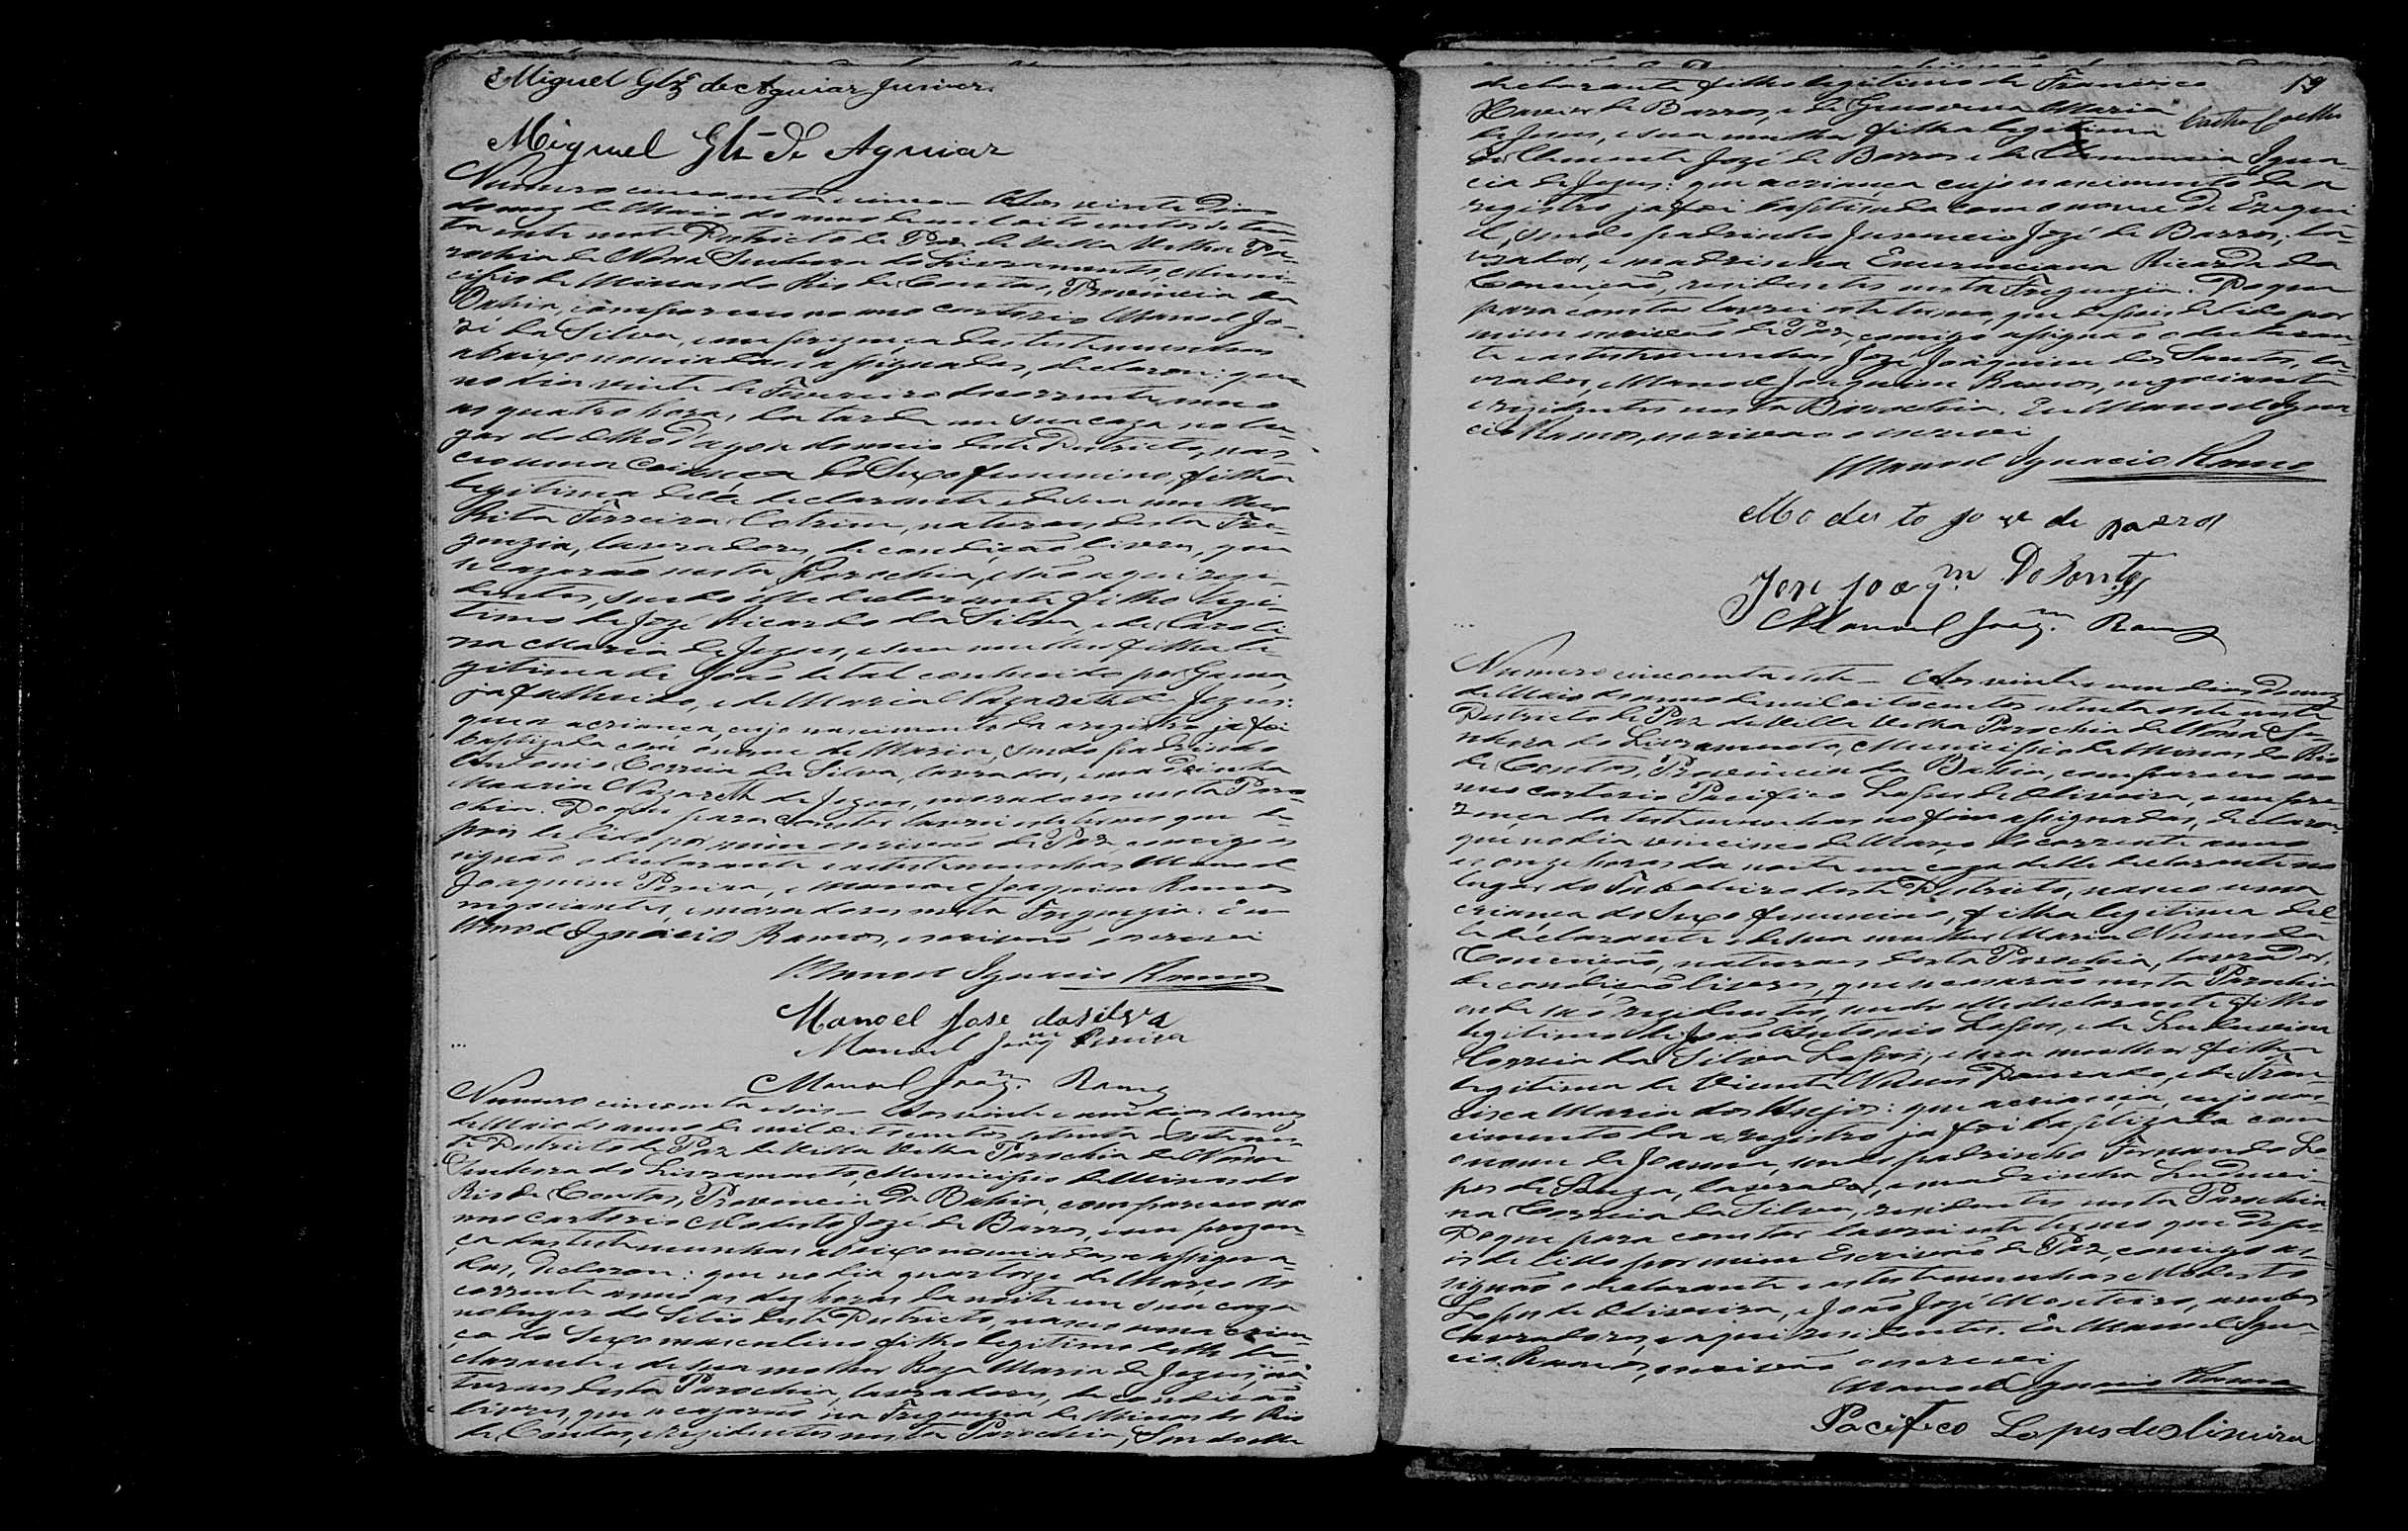 Miguel Glz de Aguiar Junior.
Miguel Glz de Aguiar
Numero cincoenta e cinco — Aos vinte dias
do mez de Maio do anno de mil oito centos seten-
ta e sete nesta Districto de Paz de Villa Velha Pa-
rochia de Nossa Senhora do Livramento, Muni-
cipio de Minas do Rio de Contas, Provincia da
Bahia, compareceo no meo cartorio Manoel Jo-
zé da Silva, em prezença das testemunhas
abaixo nomiadas e assignadas, declarou: que
no dia vinte de Fevereiro do corrente anno
as quatro horas da tarde em sua caza no lu-
gar do Olho d'agoa do meio deste Districto, nas-
ceo uma Criança do Sexo femenino, filha
legitima delle declarante e de sua mulher
Rita Ferreira Cotrim, naturaes desta Fre-
guezia, lavradores, de condição livres, que
se cazarão nesta Parochia, e são aqui rezi-
dentes, sendo elle declarante filho legi-
timo de Jozé Ricardo da Silva, e de Caroli-
na Maria de Jezus, e sua mulher filha le-
gitima de João de tal conhecido por Gama,
ja fallecido, e de Maria Nazareth de Jezus:
que a criança, cujo nascimento da a registro ja foi
baptizada com o nome de Maria, sendo padrinho
Antonio Correia da Silva, lavrador, e madrinha
Maria Nazareth de Jezus, moradores nesta Paro-
chia. Do que para constar lavrei este termo que de-
pois de lido por mim escrivão de Paz, comigo as-
signão o declarante e as testemunhas Manoel
Joaquim Pereira, e Manoel Joaquim Ramos
negociantes, e moradores nesta Freguezia. Eu
Manoel Ignacio Ramos, escrivão o escrevi
Manoel Ignacio Ramos
Manoel Jose da Silva
Manoel Joaqm Pereira
Manoel Joaqm. Ramos
Numero cincoenta e seis — Aos vinte e um dias do mez
de Maio do anno de mil oito centos setenta e sete nes-
te Districto de Paz de Villa Velha Parochia de Nossa
Senhora do Livramento, Municipio de Minas do
Rio de Contas, Provincia da Bahia, compareceo no
meo cartorio Modesto Jozé de Barros, em prezen-
ça das testemunhas abaixo nomiadas e assigna-
das, declarou: que no dia quartorze de Março do
corrente anno as dez horas da noite em sua caza
no lugar do Sitio deste Districto, nasceo uma crian-
ça do Sexo masculino filho legitimo delle de-
clarante e de sua molher Roza Maria de Jezus, na-
turaes desta Parochia, lavradores, de condição
livres, que se cazarão na Freguezia de Minas do Rio
de Contas, e rezidentes nesta Parochia, Sendo elle
19
declarante filho legitimo de Francisco
Xavier de Barros, e de Genoveva Maria
de Jesus, e sua mulher filha legitima
de Clemente Jozé de Barros e de Clemencia Igna-
cia de Jezus: que a criança cujo nascimento da a
registro ja foi baptisada com o nome de Ezequi-
el, sendo padrinho Juvencio Jozé de Barros, la-
vrador, e madrinha Emerenciana Ricarda da
Conceição, residentes nesta Freguezia. Do que
para constar lavrei este termo, que depois de lido por
mim escrivão de Paz, comigo assignão o declaran-
te e as testemunhas Jozé Joaquim dos Santos, la-
vrador, e Manoel Joaquim Ramos, negociante
e rezidentes nesta Parochia. Eu Manoel Igna-
cio Ramos, escrivão o escrevi
Manoel Ignacio Ramos
Modesto Joze de Barros
Jose Joaqm. Do Santos
Manoel Joaqm. Ramos
Numero cincoenta e sete — Aos vinte e um dias do mez
de Maio do anno de mil oito centos setenta e sete neste
Districto de Paz de Villa Velha Parochia de Nossa Se-
nhora do Livramento, Municipio de Minas do Rio
de Contas, Provincia da Bahia, compareceo no
meo cartorio Pacifico Lopes de Oliveira, e em pre-
zença das testemunhas no fim assignadas, declarou
que no dia vinte cinco de Março do corrente anno
as onze horas da noite em caza delle declarante no
lugar do Taboleiro deste Districto, nasceo uma
criança do Sexo femenino, filha legitima del-
le declarante e de sua mulher Maria Nunes da
Conceição, naturaes desta Parochia, lavradores,
de condição livres, que se cazarão nesta Parochia
onde são rezidentes, sendo elle declarante filho
legitimo de João Antonio Lopes, e de Luduvina
Correia da Silva Lopes, e sua mulher filha
legitima de Vicente Nunes Dourado, e de Fran-
cisca Maria dos Anjos: que a criança, cujo nas-
cimento da a registro ja foi baptizada com
o nome de Joanna, sendo padrinho Fernando Lo-
pes de Souza, lavrador, e madrinha Luduvi-
na Correia da Silva, residentes nesta Parochia
Do que para constar lavrei este termo que depo-
is de lido por mim Escrivão de Paz, comigo as-
signão o declarante e as testemunhas Modesto
Lopes de Oliveira, e João Jozé Monteiro, ambos
lavradores, e aqui residentes. Eu Manoel Igna-
cio Ramos, escrivão o escrevi
Manoel Ignacio Ramos
Pacifico Lopes de Oliveira